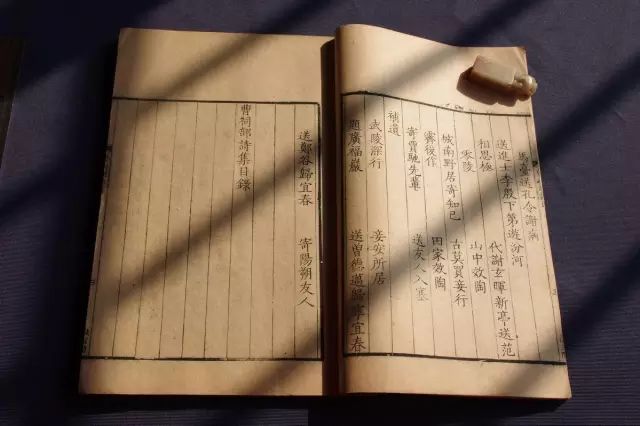 馬臺送孔令謝病
送進士李殷下第遊汾河
相思極　代謝玄暉新亭送范
零陵　山中效陶
城南野居寄知已　古莫買妾行
霽後作　田家效陶
寄賈馳先輩　送友人入塞
補遺
武陵深行　妾安所居
題廣福巖　送曾德邁歸寧宜春
送鄭谷歸宜春　寄陽朔友人
曹祠部詩集目錄